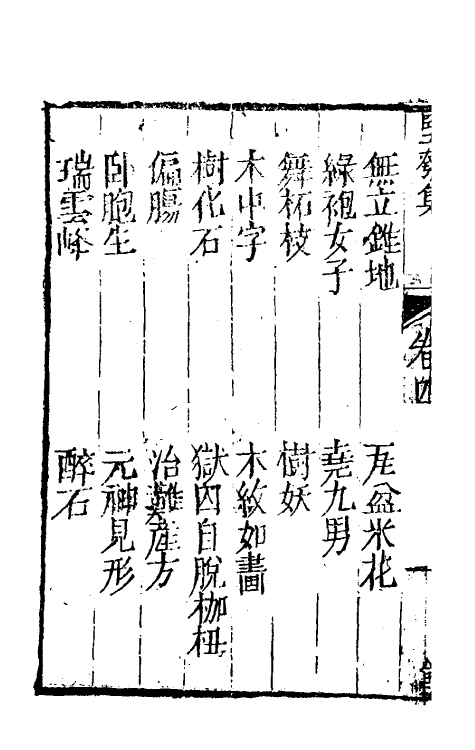 無立錐地　瓦盆米花
綠袍女子　堯九男
舞柘枝　樹妖
木中字　木紋如畫
樹化石　獄囚自脫枷杻
偏腸　治難產方
卧胞生　元神見形
瑞雲峰　醉石
集　卷四